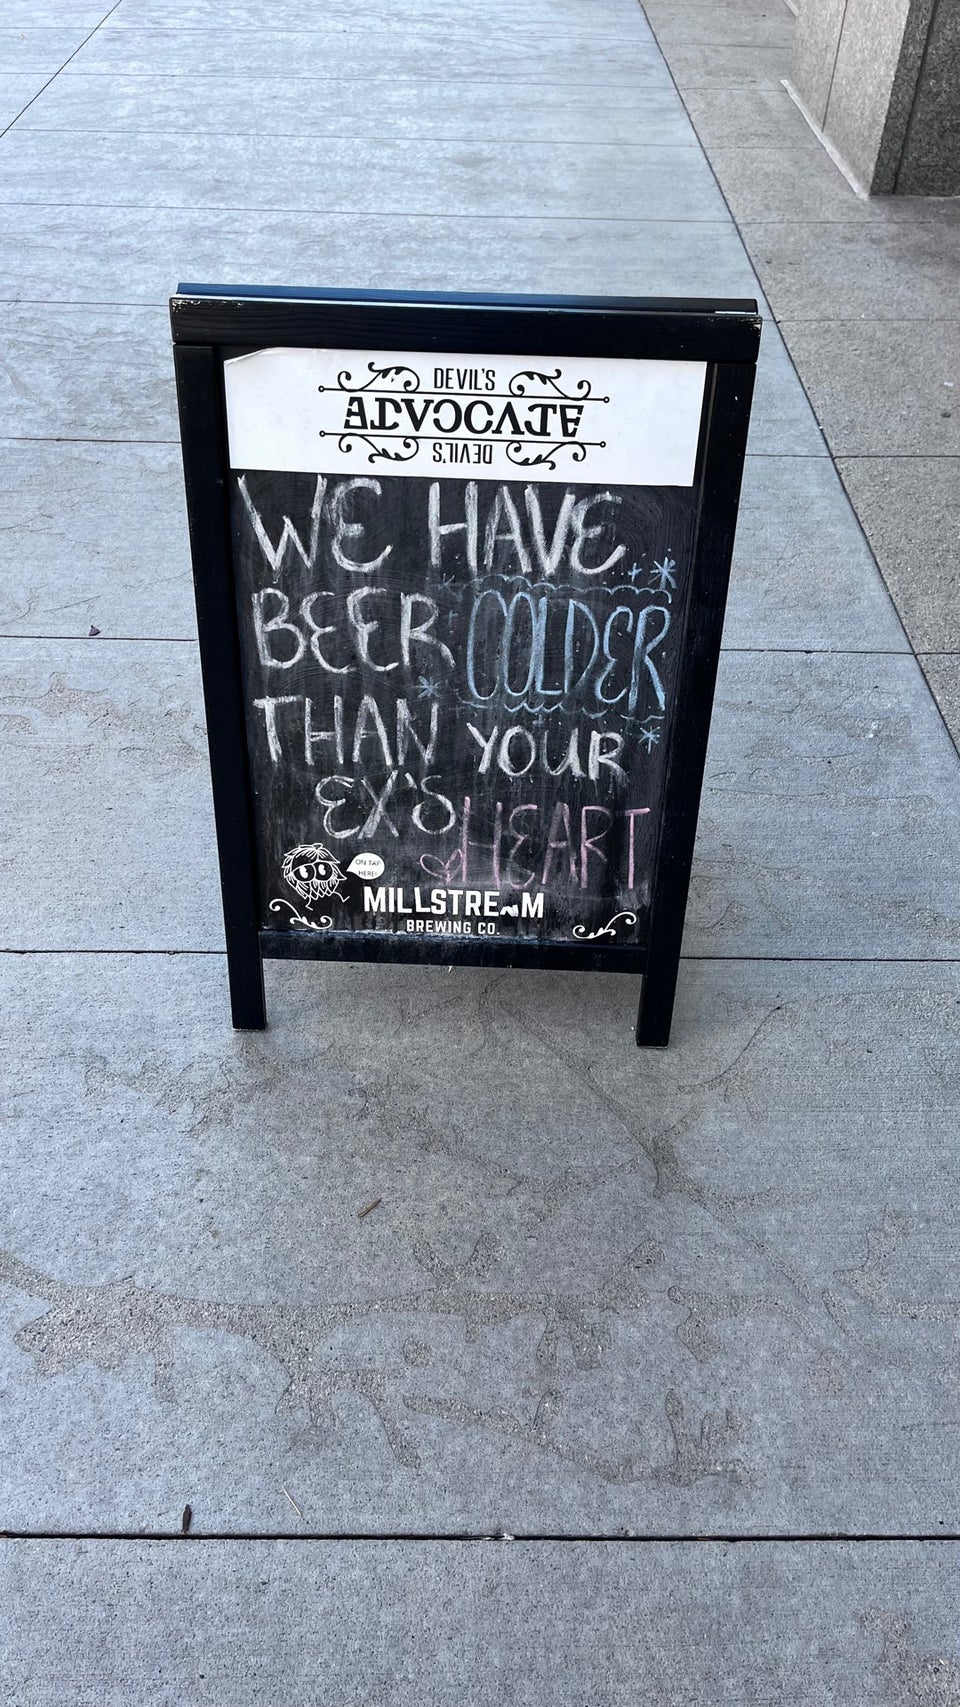 DEVIL'S
ADVOCATE
DEVIL'S
WE HAVE
BEER COLDER
THAN YOUR
EX'S HEART
ON TAP
HERE!
MILLSTREAM
BREWING CO.